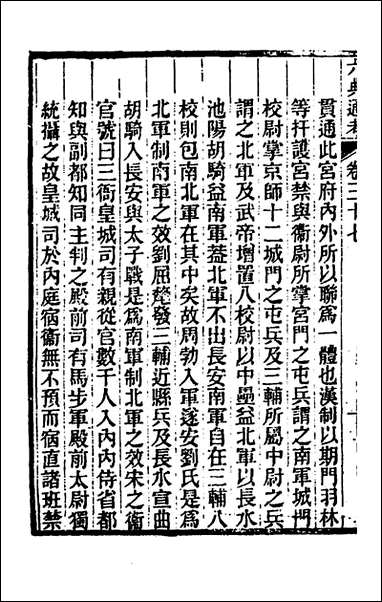 六典通考
卷三十七
貫通此宮府內外所以聯爲一體也漢制以期門羽林
等扞護宮禁與衞尉所掌宮門之屯兵謂之南軍城門
校尉掌京師十二城門之屯兵及三輔所屬中尉之兵
謂之北軍及武帝增置八校尉以中壘益北軍以長水
池陽胡騎益南軍蓋北軍不出長安南軍自在三輔八
校則包南北軍在其中矣故周勃入軍遂安劉氏是爲
北軍制南軍之效劉屈氂發三輔近縣兵及長水宣曲
胡騎入長安與太子戰是爲南軍制北軍之效宋之衞
官號曰三衙皇城司有親從官數千人入內內侍省都
知與副都知同主制之殿前司有馬步軍殿前太尉獨
統攝之故皇城司於內庭宿衞無不預而宿直諸班禁